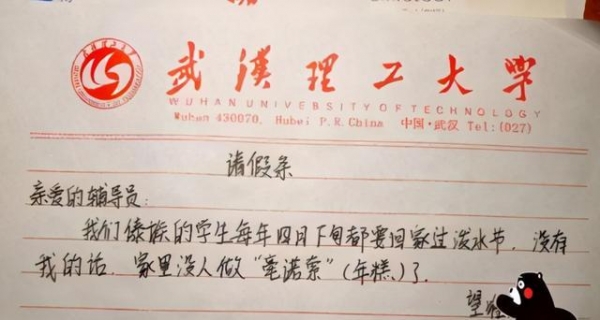 武汉理工大学
WUHAN UNIVERSITY OF TECHNOLOGY
Wuhan 430070, Hubei P.R.China 中国·武汉 Tel:(027)
请假条
亲爱的辅导员:
我们傣族的学生每年四月下旬都要回家过泼水节，没有
我的话，家里没人做“毫诺索”(年糕)了.
望